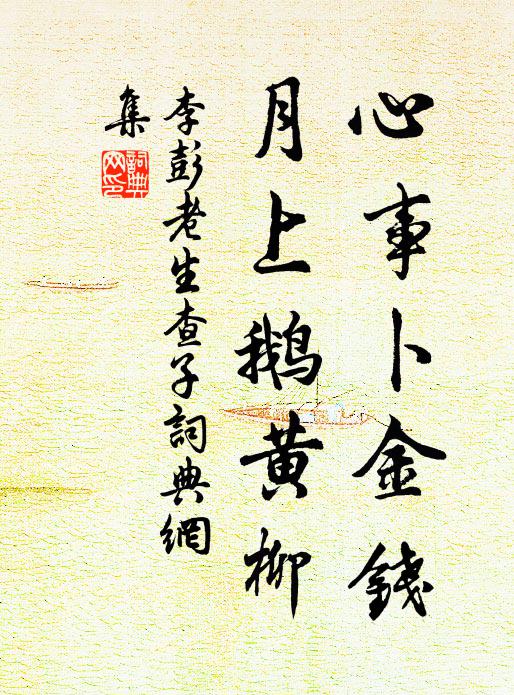 心事卜金錢
月上鹅黄柳
李彭老生查子詞典網
集
詞典
网印